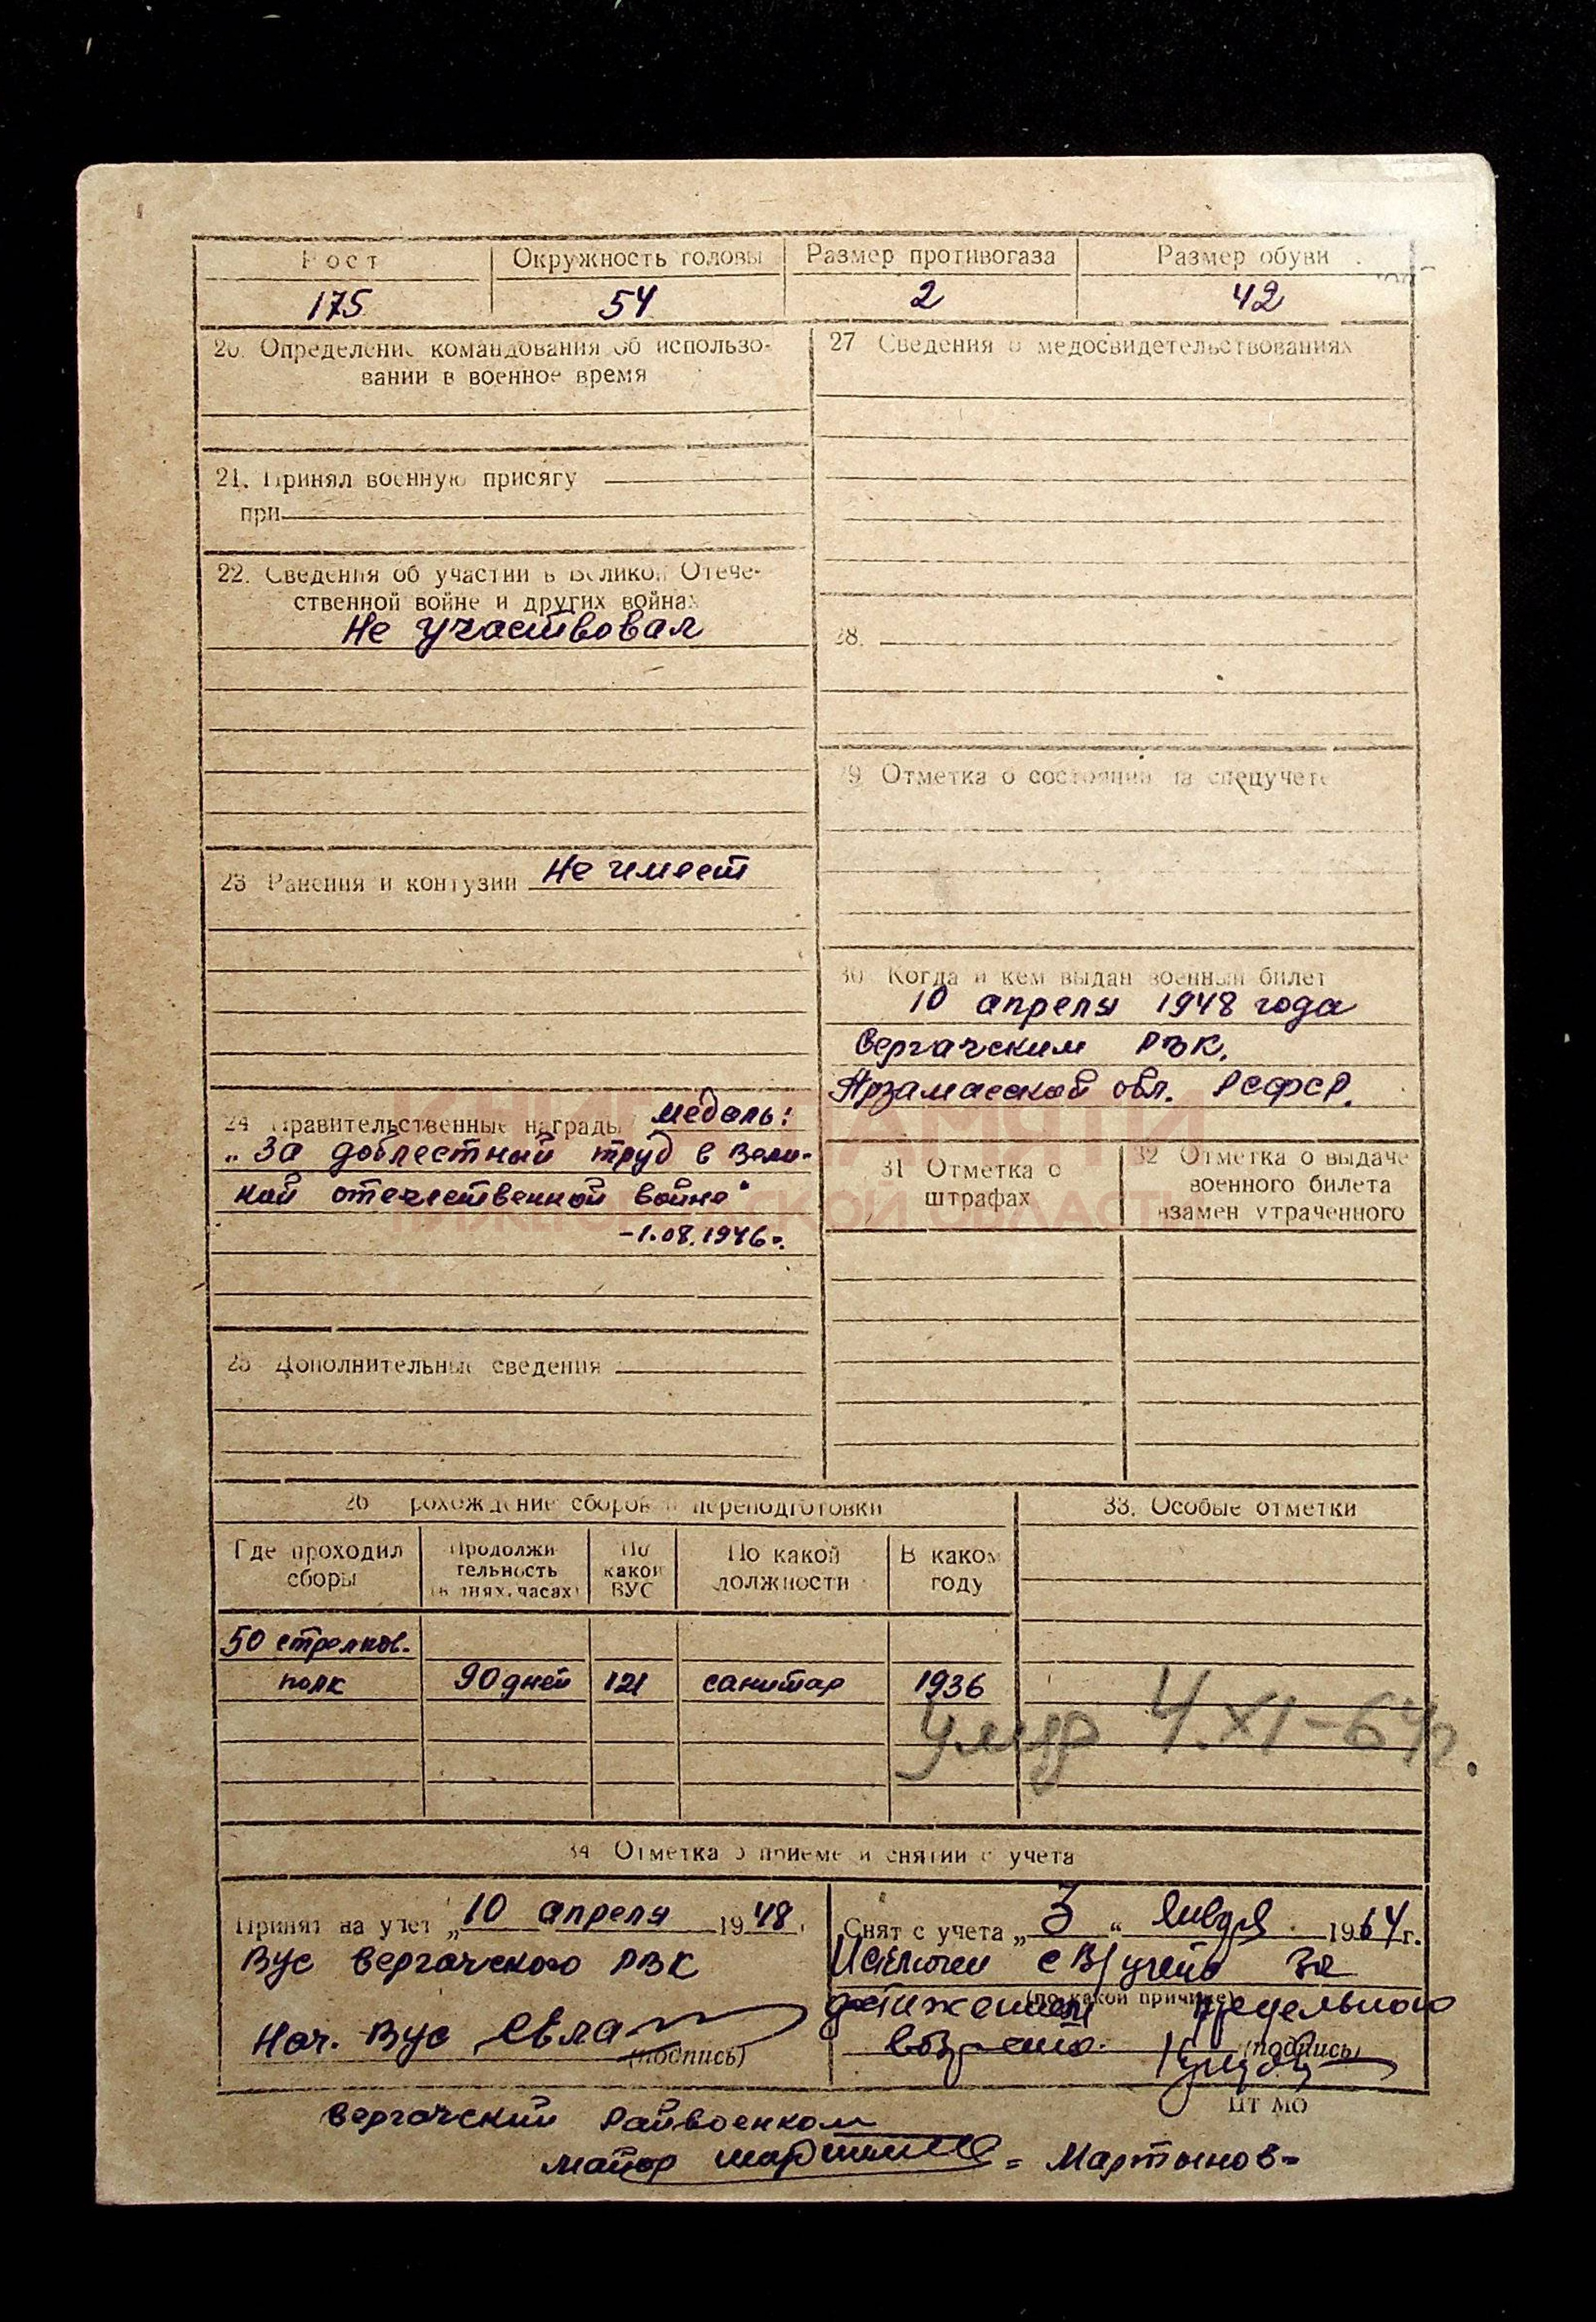 Рост
Окружность головы
Размер противогаза
Размер обуви
175
54
2
42
20. Определение командования об использо-
вании в военное время
21. Принял военную присягу
при
22. Сведения об участии в Великой Отече-
ственной войне и других войнах
Не участвовал
23 Ранения и контузии Не имеет
24 Правительственные награды медаль:
„За доблестный труд в Вели-
кой отечественной войне"
-1.08.1946г.
25 Дополнительные сведения
27 Сведения о медосвидетельствованиях
28.
29 Отметка о состоянии на спецучете
30 Когда и кем выдан военный билет
10 апреля 1948 года
Вергачским РВК.
Арзамасской обл. РСФСР.
КНИГА ПАМЯТИ
НИЖЕГОРОДСКОЙ ОБЛАСТИ
31 Отметка о
штрафах
32 Отметка о выдаче
военного билета
взамен утраченного
26 Прохождение сборов и переподготовки
Где проходил
сборы
Продолжи
тельность
(в днях, часах)
По
какой
ВУС
По какой
должности
В каком
году
50 стрелков.
полк
90 дней
121
санитар
1936
33. Особые отметки
Умер 4.XI-64г.
34 Отметка о приеме и снятии с учета
Принят на учет „10 апреля 1948г
ВУС Вергачского РВК
Нач. ВУС
(подпись)
Снят с учета „3" января 1964г.
Исключен с В/учета за
(по какой причине)
достижением предельного
возраста.
(подпись)
Вергачский Райвоенком
майор = Мартынов=